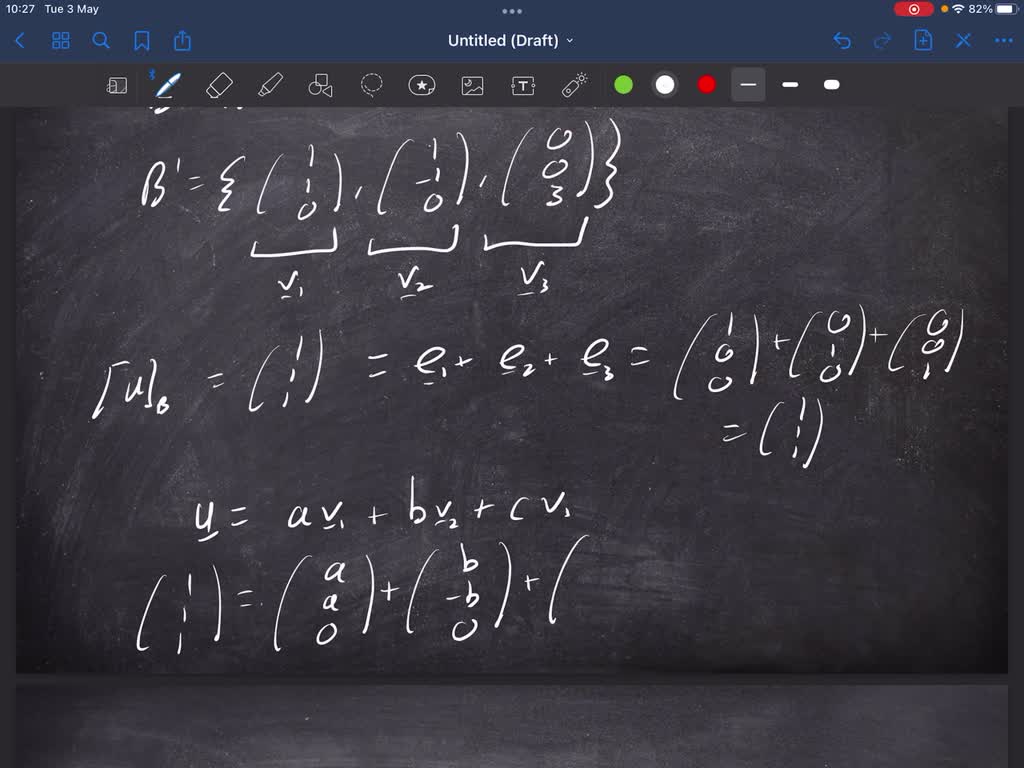 10:27 Tue 3 May 82%
Untitled (Draft)
B' = { (1 1 0), (1 -1 0), (0 0 3) }
v₁ v₂ v₃
[u]B = (1 1 1) = e₁ + e₂ + e₃ = (1 0 0) + (0 1 0) + (0 0 1)
= (1 1 1)
u = a v₁ + b v₂ + c v₁
(1 1 1) = (a a 0) + (b -b 0) + (